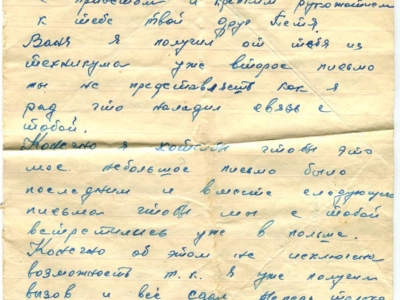 с приветом и крепким рукожатием
к тебе твой друг Петя.
Ваня я получил от тебя из
техникума уже второе письмо
ты не представляеть как я
рад что наладил связь с
тобой.
Конечно я хотел бы чтобы это
мое небольшое письмо было
последним и вместе следующего
письма чтобы мы с тобой
встретились уже в
Конечно об этом не исключена
возможность т.к. я уже получил
вызов и всё сдал